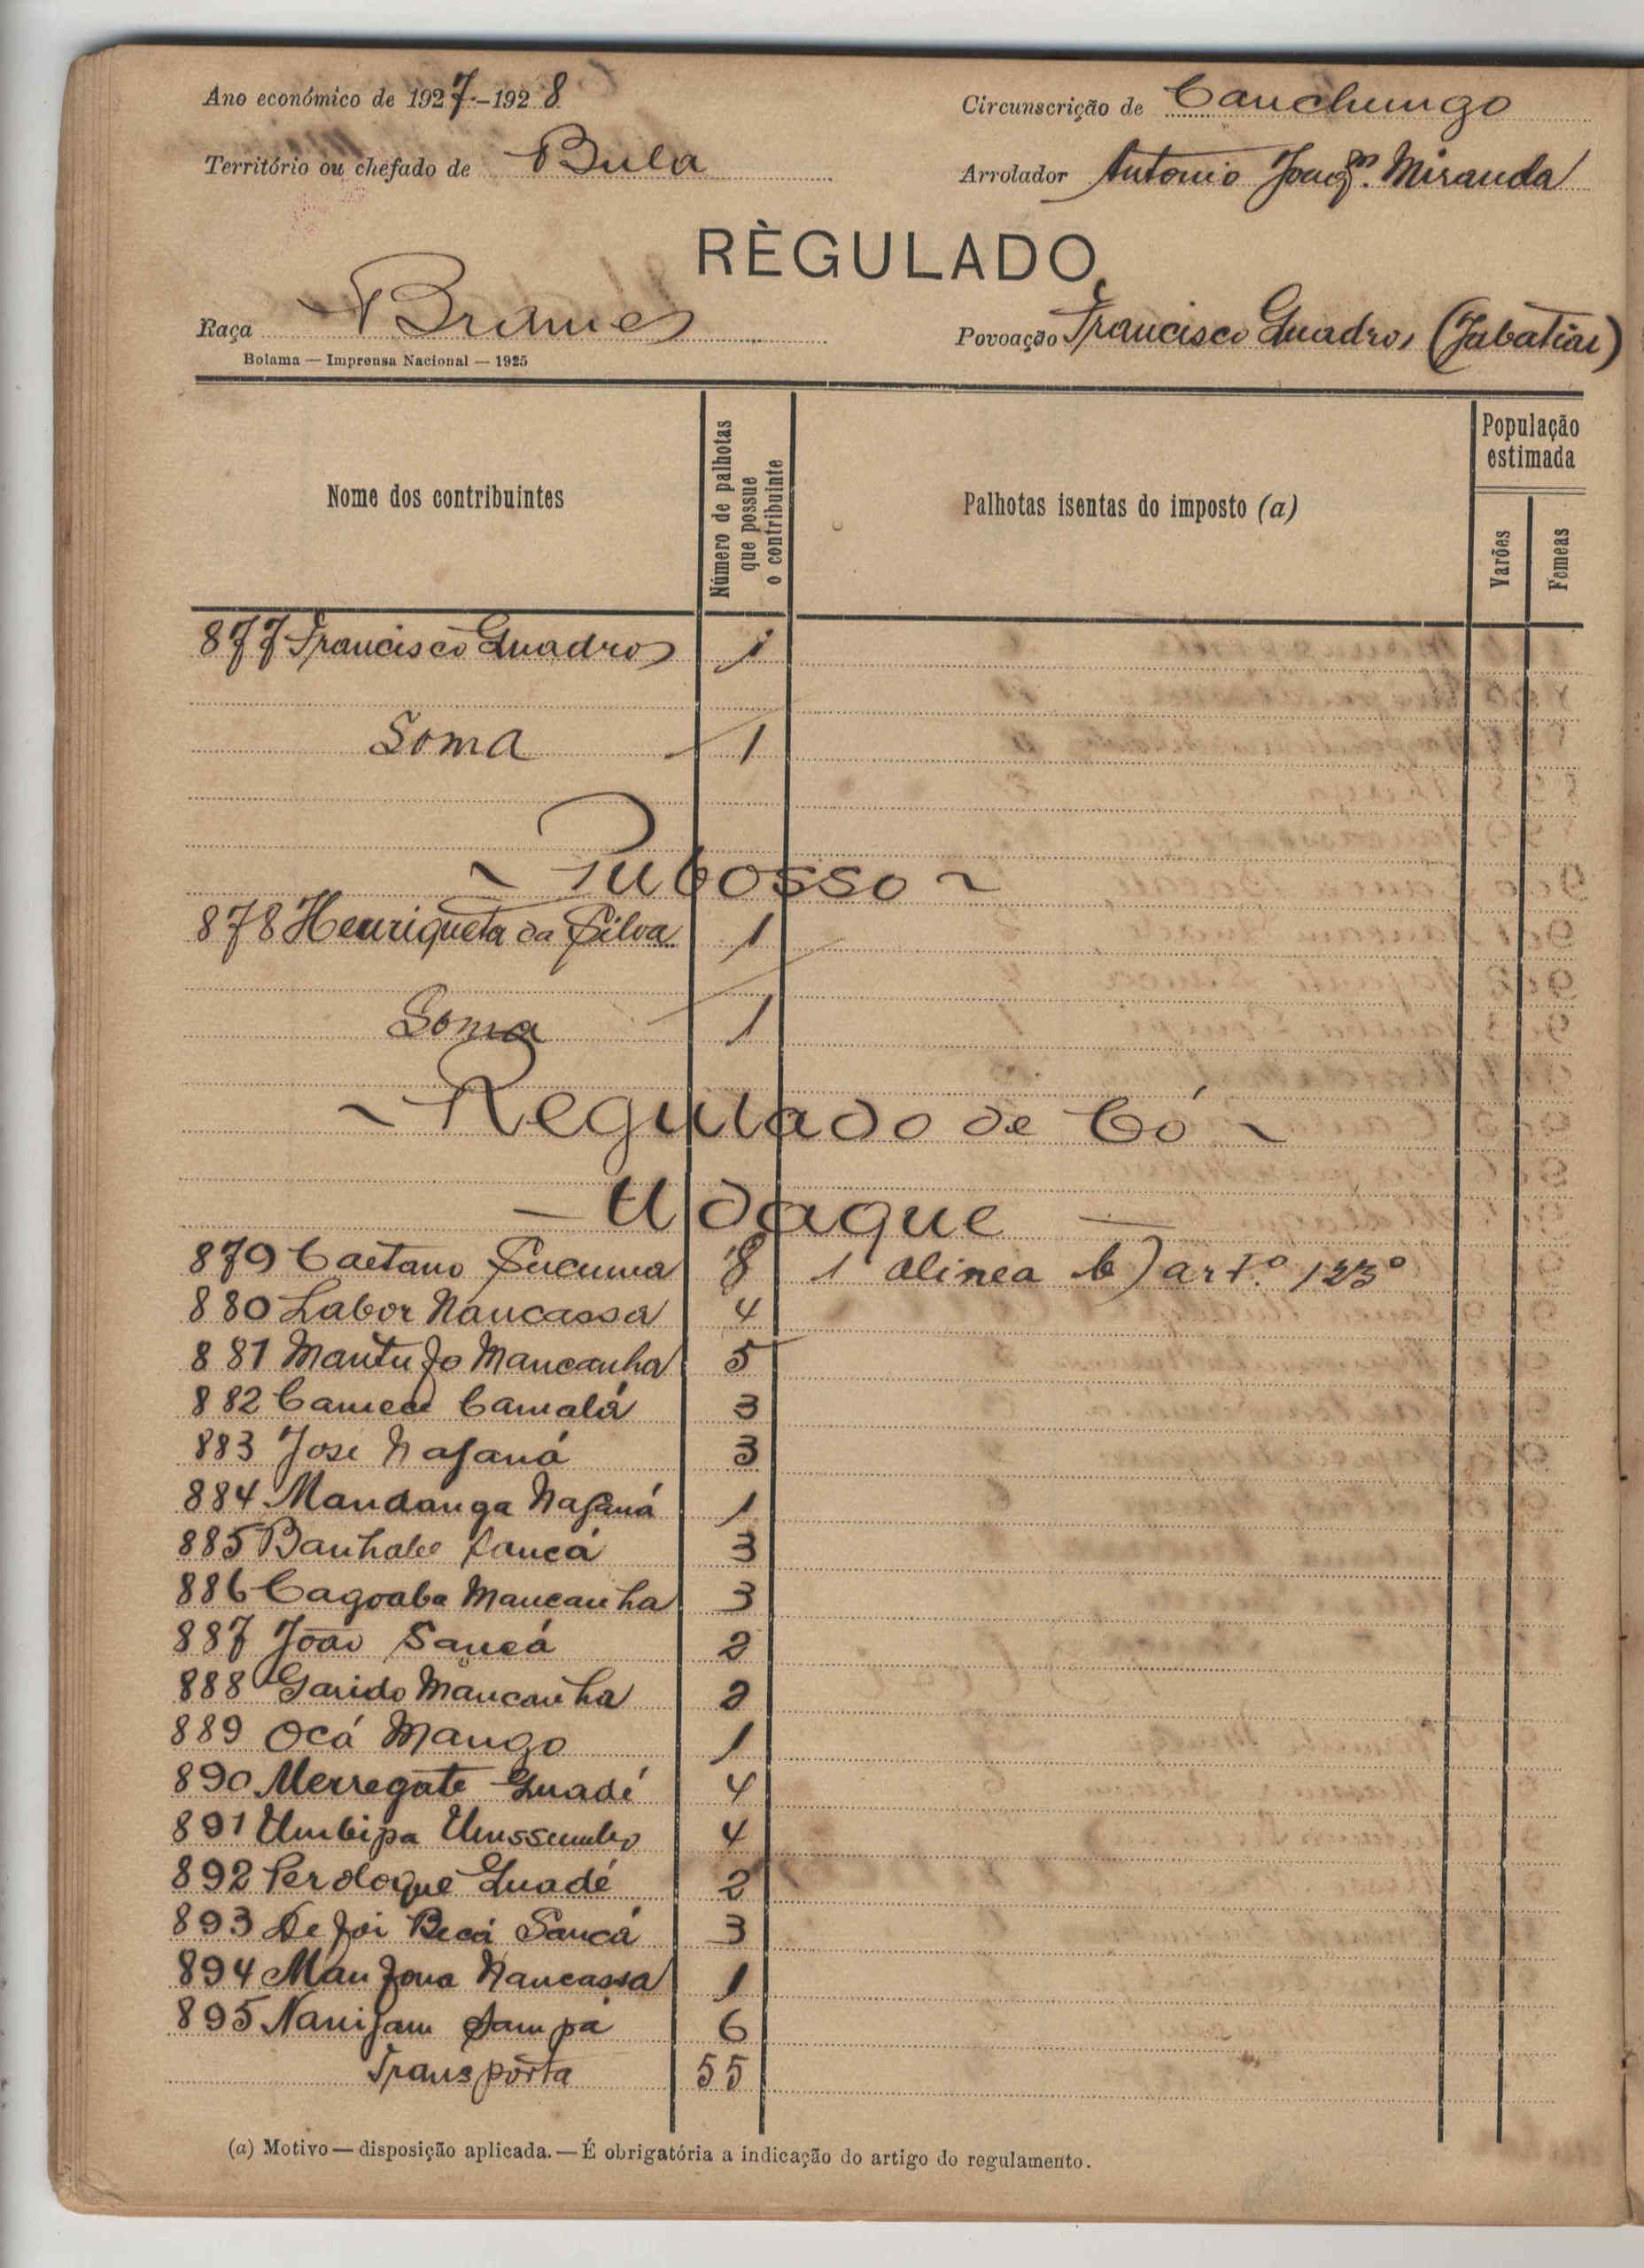 Ano económico de 1927-1928
Circunscrição de Canchungo
Território ou chefado de Bula
Arrolador Antonio Joaqm. Miranda
RÈGULADO
Raça Brames
Povoação Francisco Quadros (Jabatiar)
Bolama — Imprensa Nacional — 1925
Nome dos contribuintes
Número de palhotas que possue o contribuinte
Palhotas isentas do imposto (a)
População estimada
Varões
Femeas
877 Francisco Quadros 1
Soma 1
~ Pubosso ~
878 Henriqueta da Silva 1
Soma 1
~ Regulado de Có ~
— Udaque —
879 Caetano Sucuma 8 1 alinea b) art.º 123º
880 Labor Nancassa 4
881 Mantujo Mancanha 5
882 Camalá 3
883 José Nafaná 3
884 Mandanga Nafaná 1
885 Banhale Sancá 3
886 Cagoaba Mancanha 3
887 João Sancá 2
888 Garido Mancanha 2
889 Ocá Mango 1
890 Merregate Quadé 4
891 Umbipa 4
892 Perdoque Quadé 2
893 Becá Sancá 3
894 Manjona Nancassa 1
895 Nanijam Sampá 6
Transporta 55
(a) Motivo — disposição aplicada. — É obrigatória a indicação do artigo do regulamento.